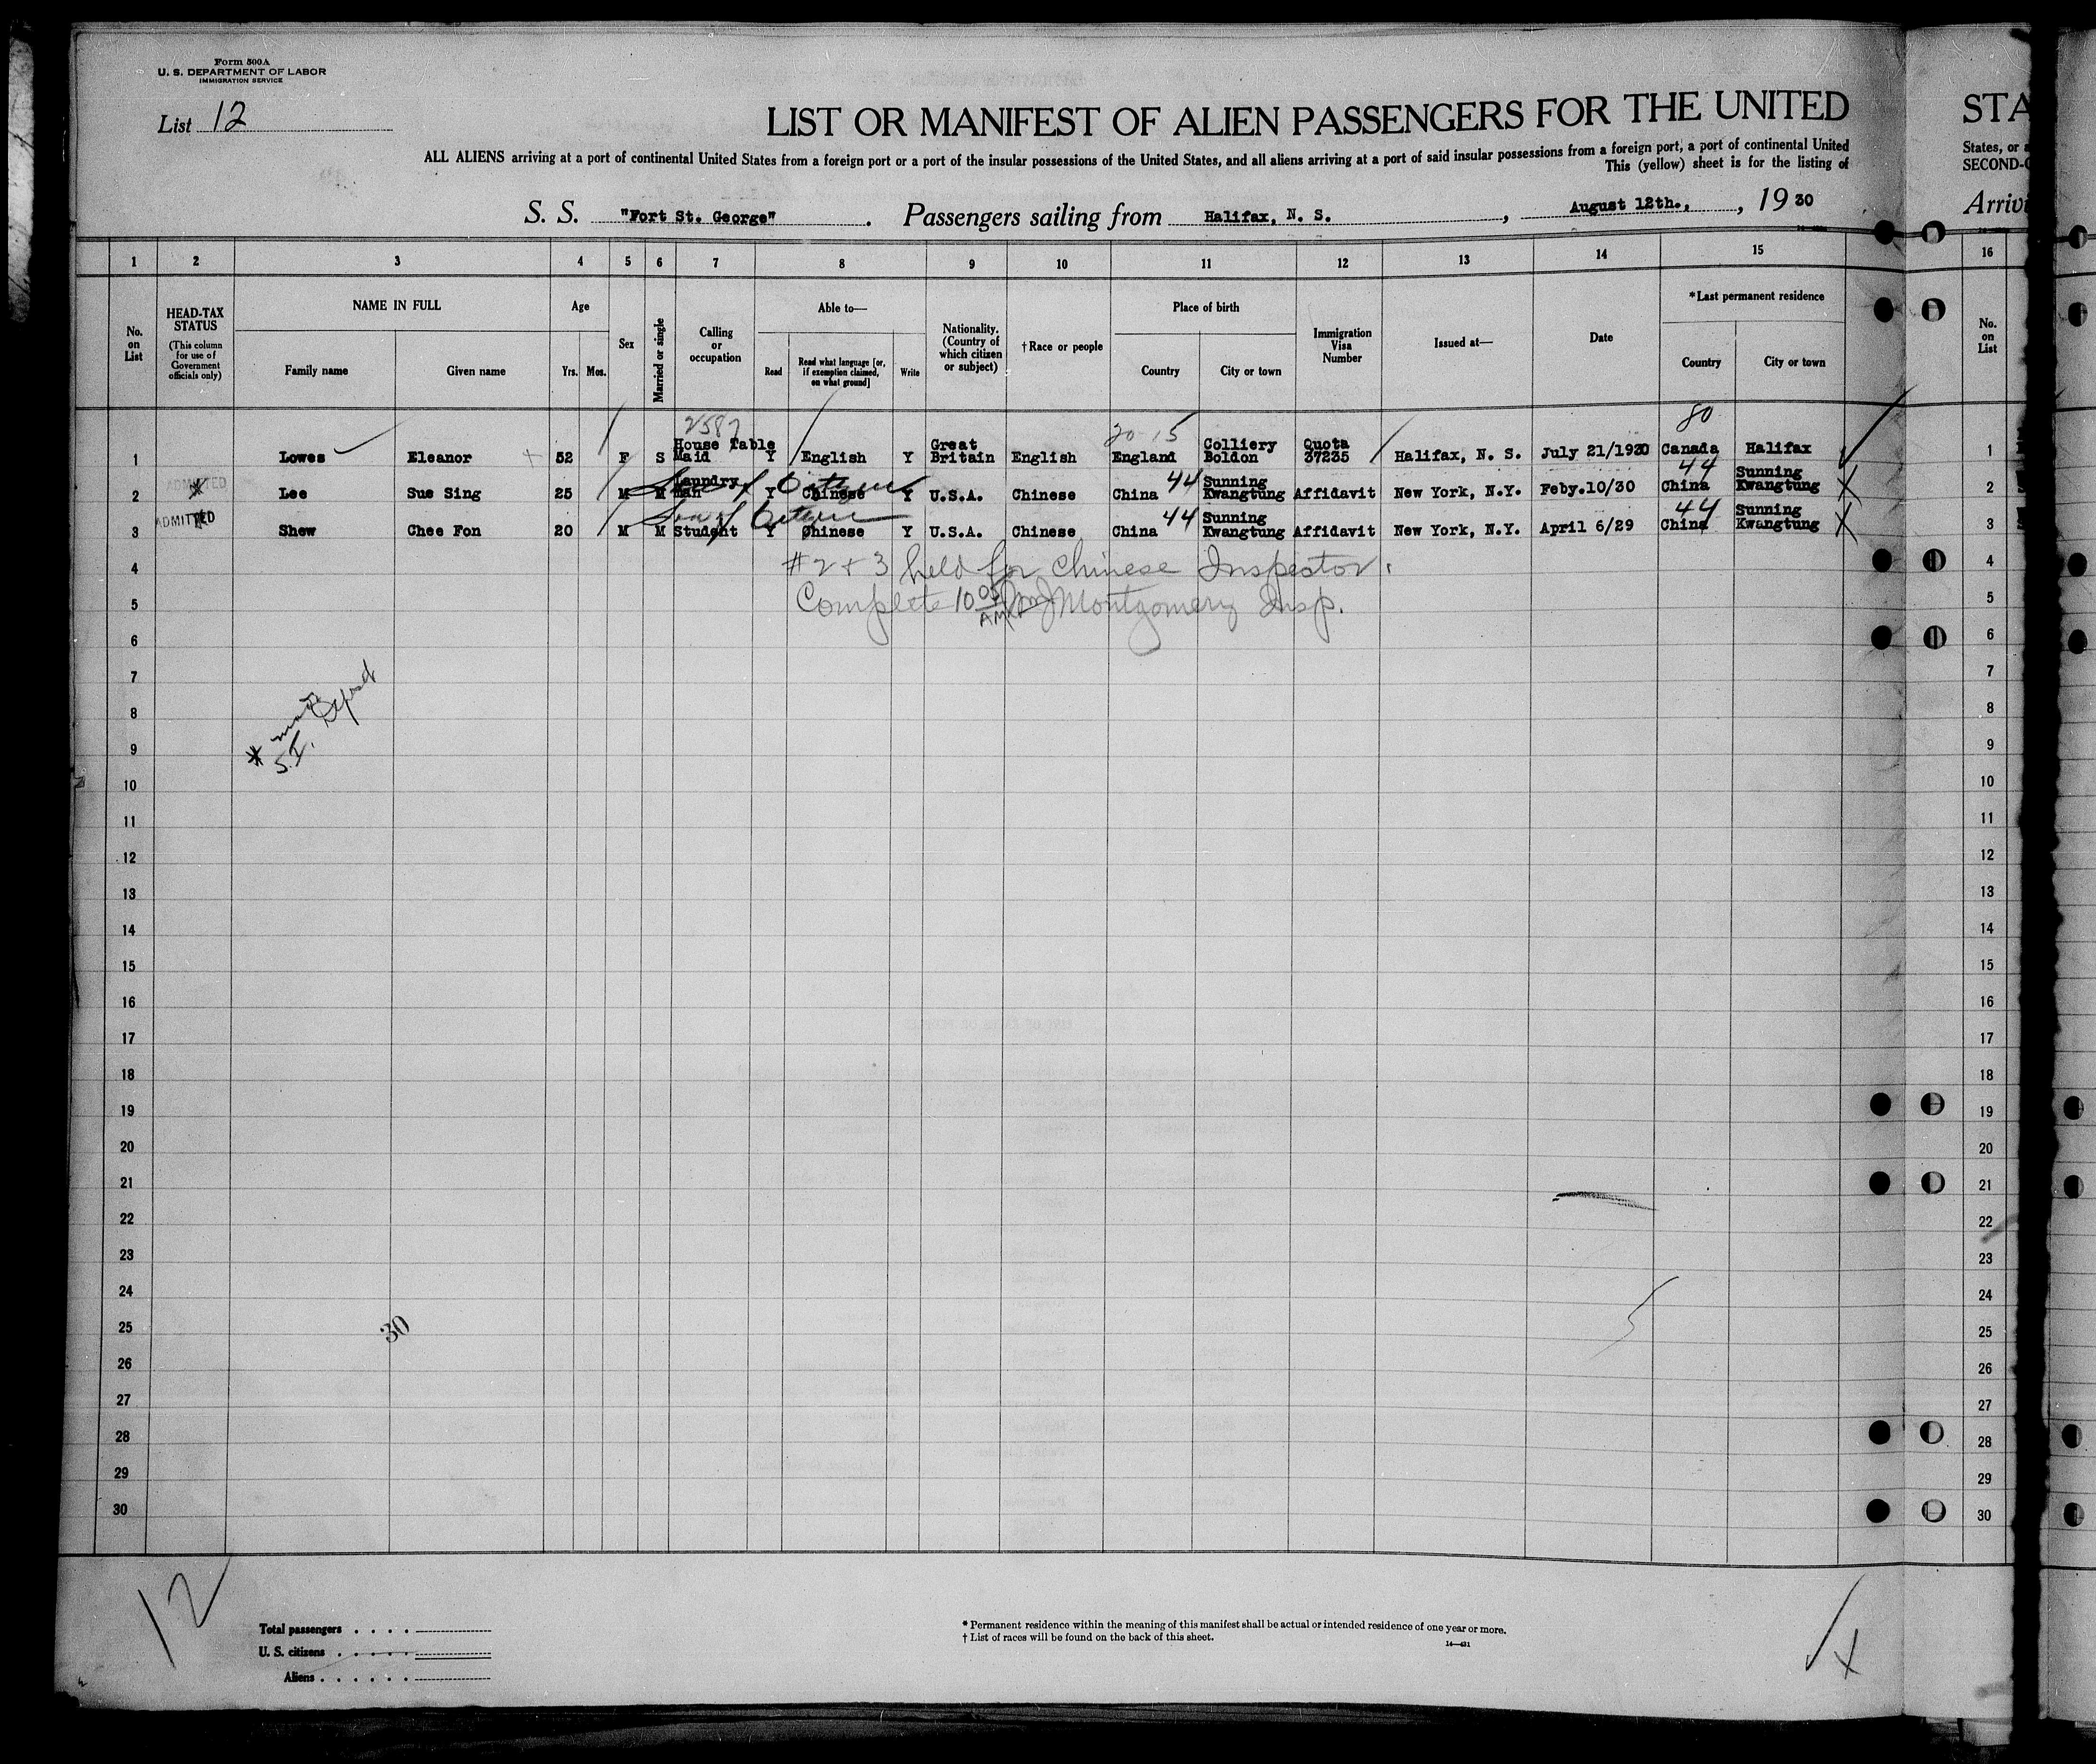 Form 500A
U. S. DEPARTMENT OF LABOR
IMMIGRATION SERVICE
List 12
LIST OR MANIFEST OF ALIEN PASSENGERS FOR THE UNITED
STA
ALL ALIENS arriving at a port of continental United States from a foreign port or a port of the insular possessions of the United States, and all aliens arriving at a port of said insular possessions from a foreign port, a port of continental United
States, or a
This (yellow) sheet is for the listing of
SECOND-C
S. S. "Fort St. George". Passengers sailing from Halifax, N. S., August 12th., , 19 30
Arrivi
1 2 3 4 5 6 7 8 9 10 11 12 13 14 15 16
No. on List
HEAD-TAX STATUS
(This column for use of Government officials only)
NAME IN FULL
Family name Given name
Age
Yrs. Mos.
Sex
Married or single
Calling or occupation
Able to—
Read
Read what language [or, if exemption claimed, on what ground]
Write
Nationality. (Country of which citizen or subject)
† Race or people
Place of birth
Country City or town
Immigration Visa Number
Issued at—
Date
*Last permanent residence
Country City or town
No. on List
2587 20 15 80
1 Lowes Eleanor 52 F S House Table Maid Y English Y Great Britain English England Colliery Boldon Quota 37235 Halifax, N. S. July 21/1930 Canada Halifax 1
ADMITTED Son of Citizen 44 44
2 Lee Sue Sing 25 M M Laundry Man Y Chinese Y U.S.A. Chinese China Sunning Kwangtung Affidavit New York, N.Y. Feby.10/30 China Sunning Kwangtung 2
ADMITTED Son of Citizen 44 44
3 Shew Chee Fon 20 M M Student Y Chinese Y U.S.A. Chinese China Sunning Kwangtung Affidavit New York, N.Y. April 6/29 China Sunning Kwangtung 3
4 #2 + 3 held for Chinese Inspector. 4
5 Complete 10 05 AM Montgomery Insp. 5
6 6
7 7
8 8
9 * S.I. 9
10 10
11 11
12 12
13 13
14 14
15 15
16 16
17 17
18 18
19 19
20 20
21 21
22 22
23 23
24 24
25 30 25
26 26
27 27
28 28
29 29
30 30
12
Total passengers . . . .
U. S. citizens . . . . . .
Aliens . . . . . .
* Permanent residence within the meaning of this manifest shall be actual or intended residence of one year or more.
† List of races will be found on the back of this sheet.
14—421